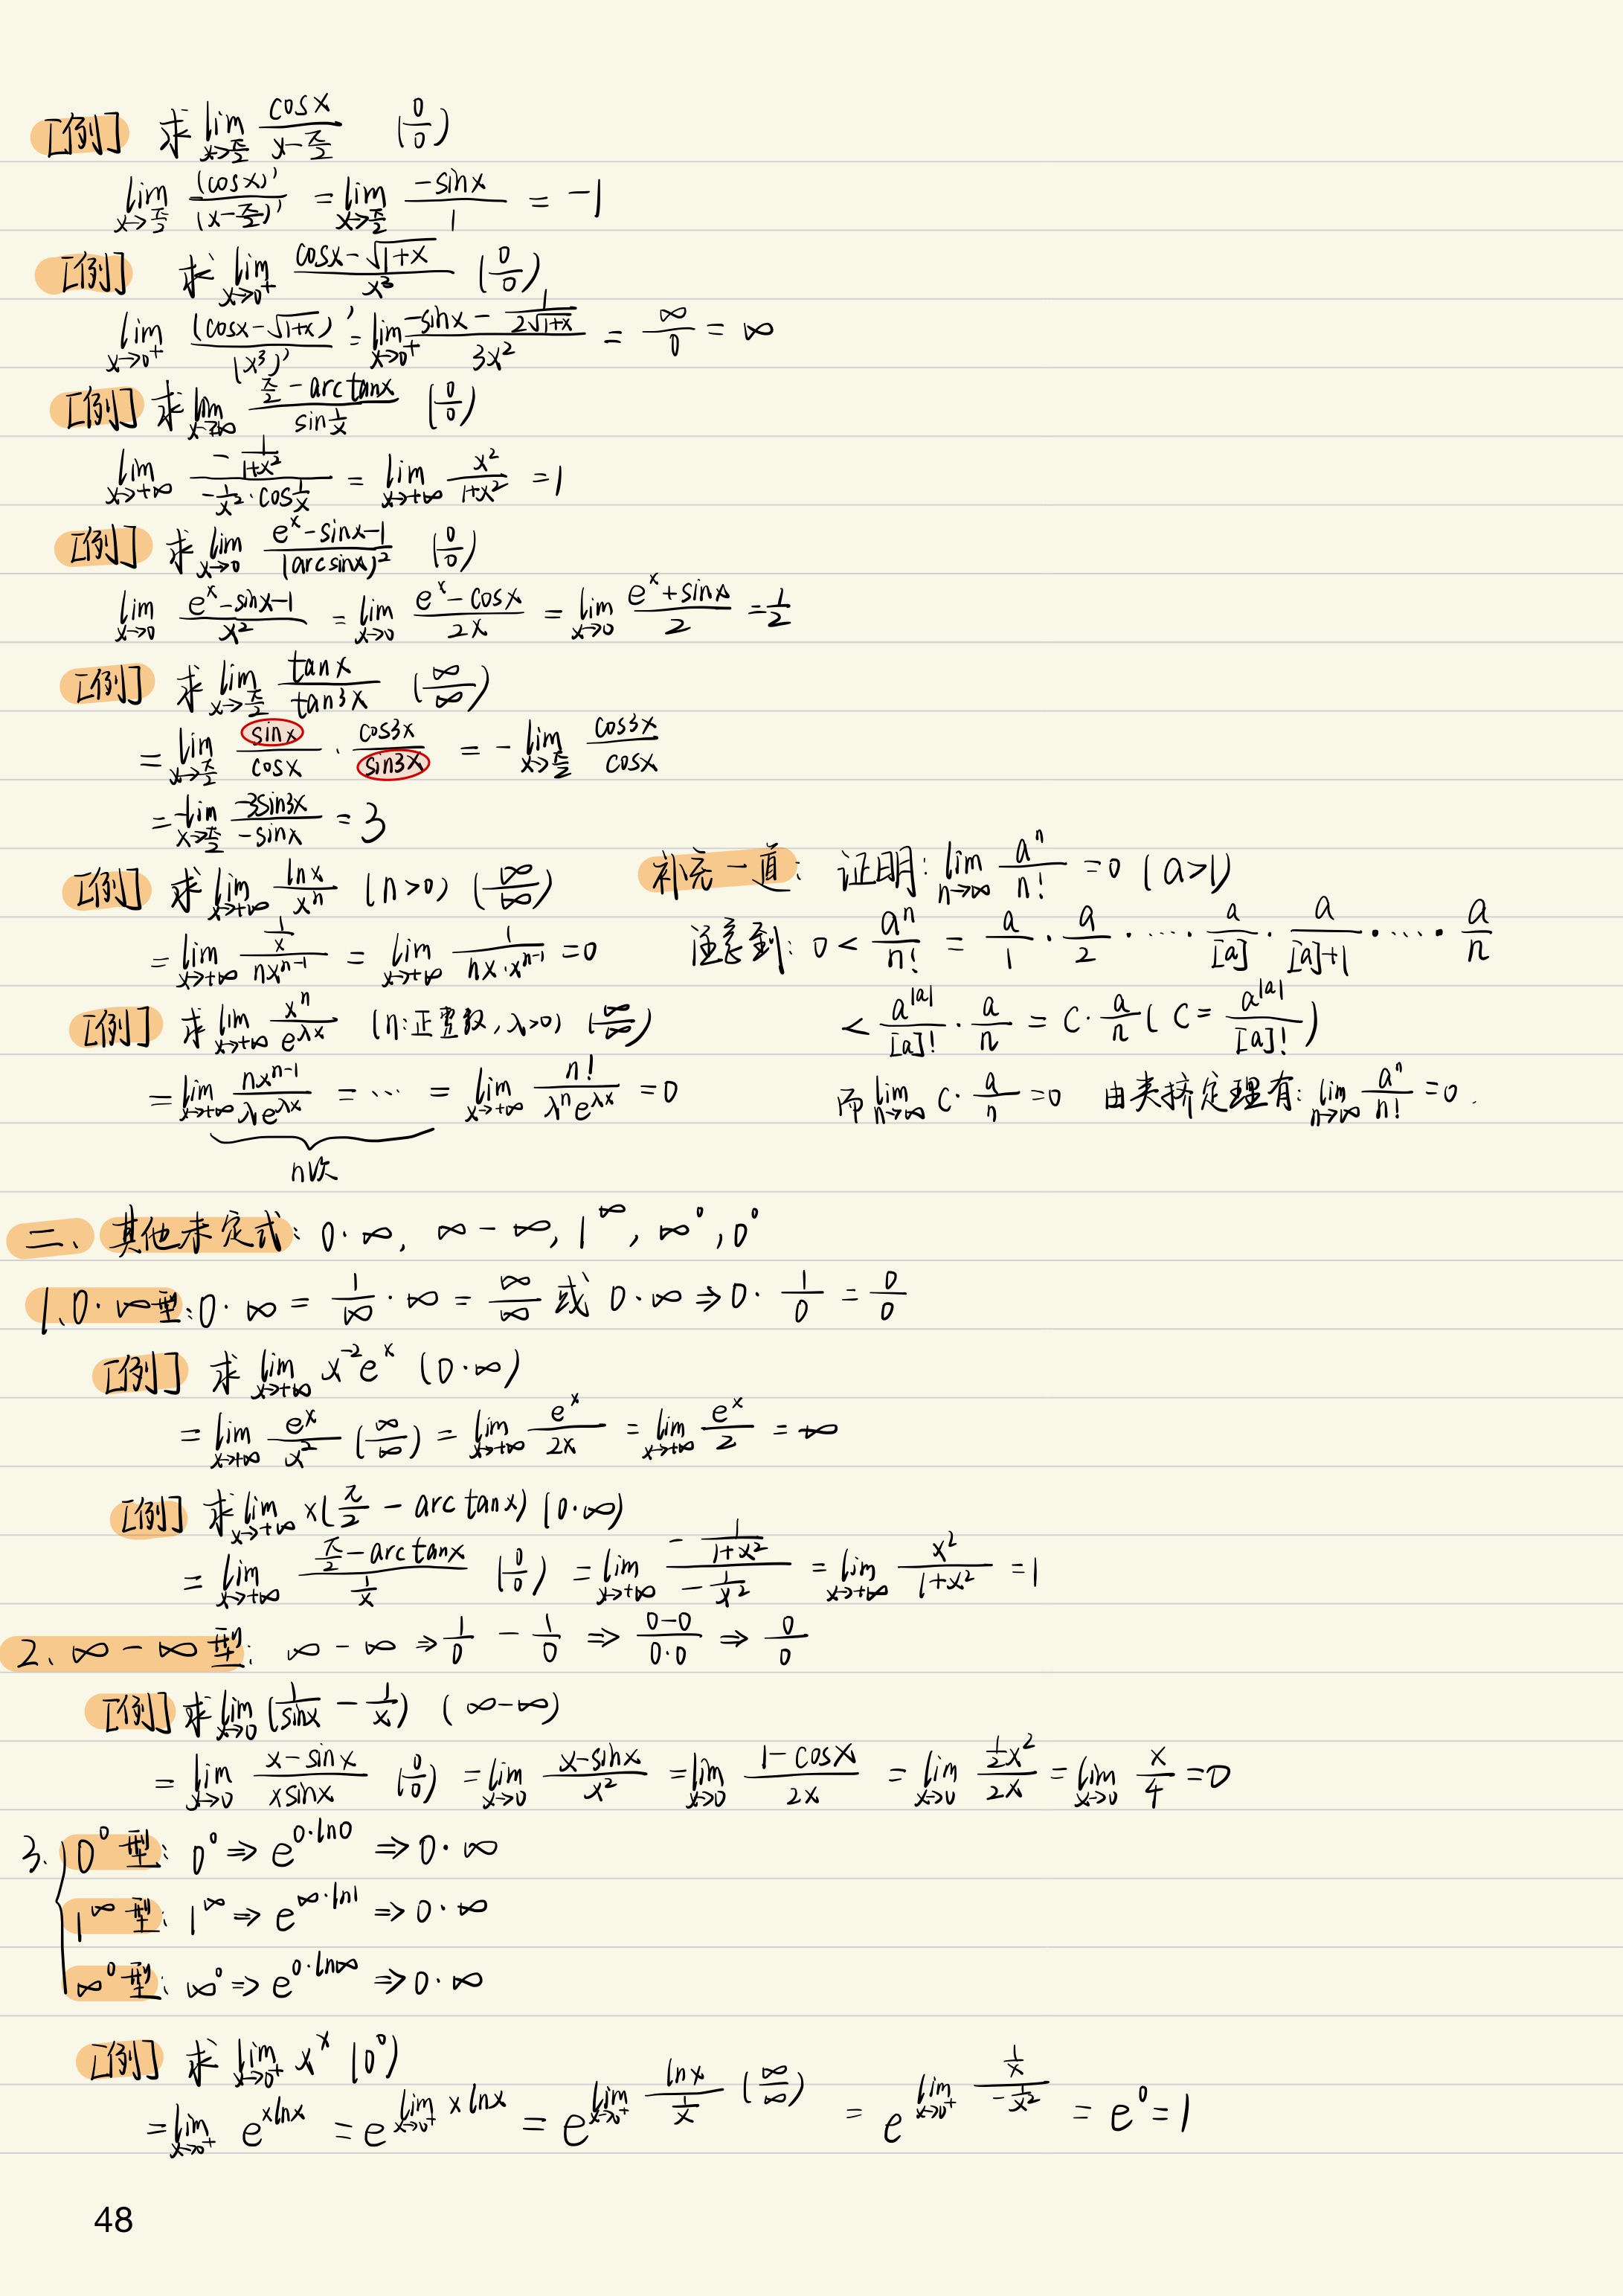 [例] 求 lim_{x→π/2} cosx/(x-π/2) (0/0)
lim_{x→π/2} (cosx)'/(x-π/2)' = lim_{x→π/2} -sinx/1 = -1
[例] 求 lim_{x→0⁺} (cosx-√(1+x))/x³ (0/0)
lim_{x→0⁺} (cosx-√(1+x))'/(x³)' = lim_{x→0⁺} (-sinx - 1/(2√(1+x)))/3x² = ∞/0 = ∞
[例] 求 lim_{x→+∞} (π/2 - arctanx)/sin(1/x) (0/0)
lim_{x→+∞} (-1/(1+x²))/(-1/x²·cos(1/x)) = lim_{x→+∞} x²/(1+x²) = 1
[例] 求 lim_{x→0} (eˣ-sinx-1)/(arcsinx)² (0/0)
lim_{x→0} (eˣ-sinx-1)/x² = lim_{x→0} (eˣ-cosx)/2x = lim_{x→0} (eˣ+sinx)/2 = 1/2
[例] 求 lim_{x→π/2} tanx/tan3x (∞/∞)
= lim_{x→π/2} sinx/cosx · cos3x/sin3x = - lim_{x→π/2} cos3x/cosx
= -lim_{x→π/2} -3sin3x/-sinx = 3
[例] 求 lim_{x→+∞} lnx/xⁿ (n>0) (∞/∞)
= lim_{x→+∞} (1/x)/(nxⁿ⁻¹) = lim_{x→+∞} 1/(nx·xⁿ⁻¹) = 0
[例] 求 lim_{x→+∞} xⁿ/e^{λx} (n:正整数, λ>0) (∞/∞)
= lim_{x→+∞} nxⁿ⁻¹/(λe^{λx}) = ⋯ = lim_{x→+∞} n!/(λⁿe^{λx}) = 0
n次
补充一道: 证明: lim_{n→∞} aⁿ/n! = 0 (a>1)
注意到: 0 < aⁿ/n! = a/1 · a/2 · ⋯ · a/[a] · a/([a]+1) · ⋯ · a/n
< a^{[a]}/[a]! · a/n = C · a/n ( C = a^{[a]}/[a]! )
而 lim_{n→∞} C · a/n = 0 由夹挤定理有: lim_{n→∞} aⁿ/n! = 0.
二、其他未定式: 0·∞, ∞-∞, 1^∞, ∞⁰, 0⁰
1、0·∞型: 0·∞ = 1/∞ · ∞ = ∞/∞ 或 0·∞ ⇒ 0 · 1/0 = 0/0
[例] 求 lim_{x→+∞} x⁻²eˣ (0·∞)
= lim_{x→+∞} eˣ/x² (∞/∞) = lim_{x→+∞} eˣ/2x = lim_{x→+∞} eˣ/2 = +∞
[例] 求 lim_{x→+∞} x(π/2 - arctanx) (0·∞)
= lim_{x→+∞} (π/2 - arctanx)/(1/x) (0/0) = lim_{x→+∞} (-1/(1+x²))/(-1/x²) = lim_{x→+∞} x²/(1+x²) = 1
2、∞-∞型: ∞-∞ ⇒ 1/0 - 1/0 ⇒ (0-0)/(0·0) ⇒ 0/0
[例] 求 lim_{x→0} (1/sinx - 1/x) (∞-∞)
= lim_{x→0} (x-sinx)/(xsinx) (0/0) = lim_{x→0} (x-sinx)/x² = lim_{x→0} (1-cosx)/2x = lim_{x→0} (½x²)/2x = lim_{x→0} x/4 = 0
3. 0⁰型: 0⁰ ⇒ e^{0·ln0} ⇒ 0·∞
1^∞型: 1^∞ ⇒ e^{∞·ln1} ⇒ 0·∞
∞⁰型: ∞⁰ ⇒ e^{0·ln∞} ⇒ 0·∞
[例] 求 lim_{x→0⁺} xˣ (0⁰)
= lim_{x→0⁺} e^{xlnx} = e^{lim_{x→0⁺} xlnx} = e^{lim_{x→0⁺} lnx/(1/x)} (∞/∞) = e^{lim_{x→0⁺} (1/x)/(-1/x²)} = e⁰ = 1
48